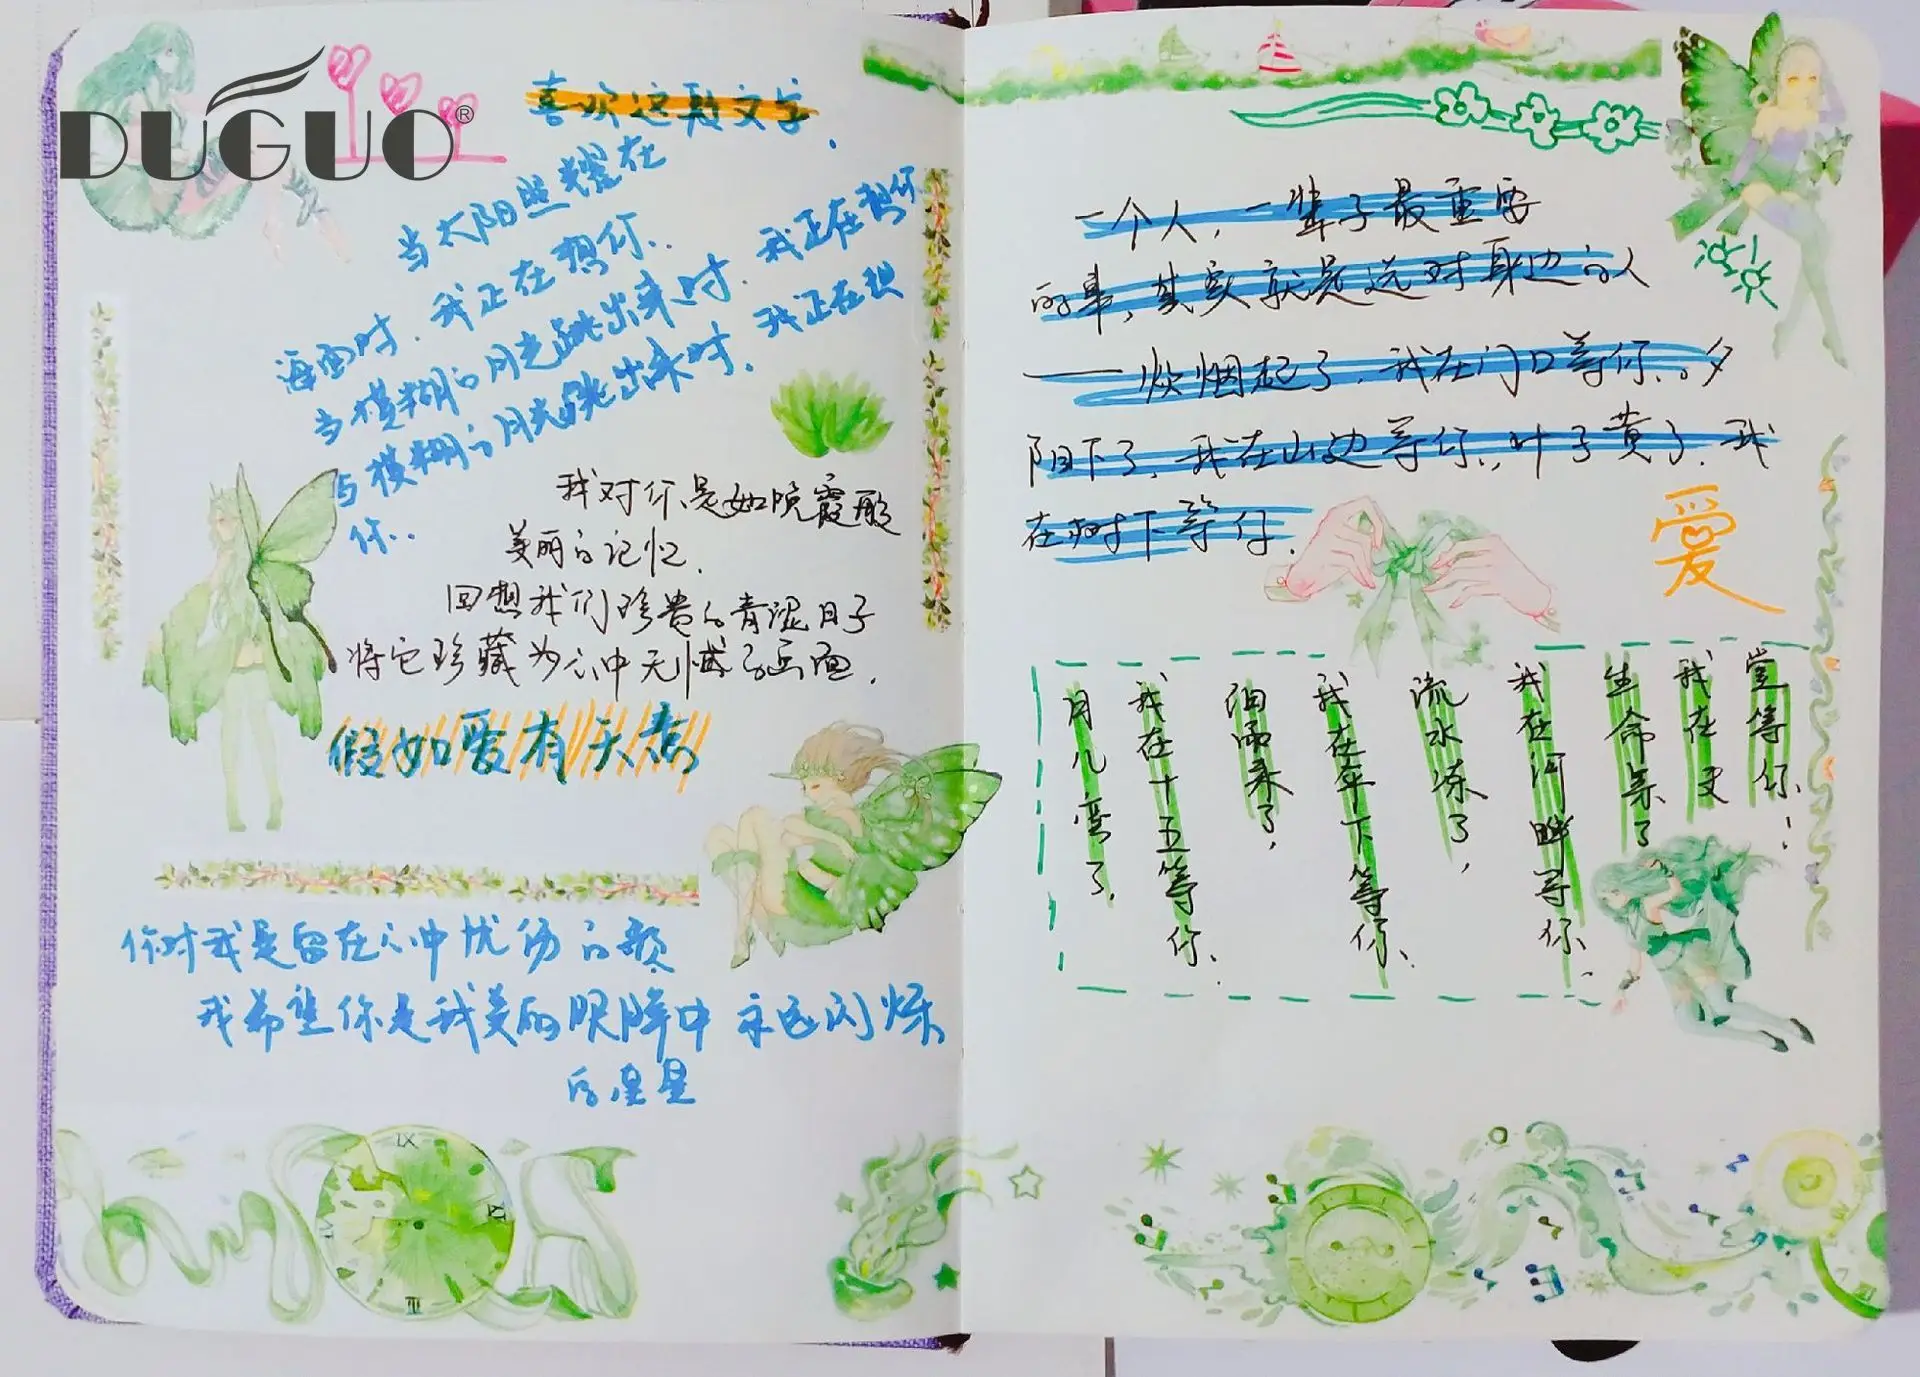 DUGUO®
喜欢这题文字.
当太阳照耀在
海面时.我正在想你..
当模糊的月光跳出来时.我正在想你
当模糊的月光跳出来时.我正在想
你..
我对你是如晚霞般
美丽的记忆.
回想我们珍贵的青涩日子
将它珍藏为心中无憾画面.
假如爱有天意
你对我是留在心中忧伤的歌
我希望你是我美丽眼眸中永远闪烁
的星星
一个人,一辈子最重要
的事,其实就是选对身边的人
——炊烟起了,我在门口等你.夕
阳下了,我在山边等你,叶子黄了.我
在树下等你.
爱
月儿弯了,
我在十五等你、
细雨来了,
我在伞下等你、
流水冻了,
我在河畔等你、
生命累了
我在天
堂等你!